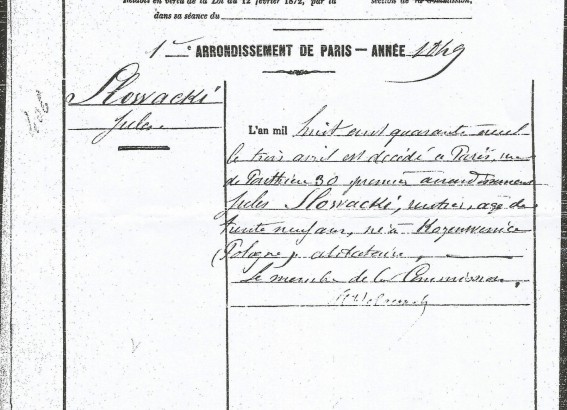 en vertu de la Loi du 12 février 1872, par la
section de la Commission,
dans sa séance du
1er ARRONDISSEMENT DE PARIS — ANNÉE 1849
Slowacki
Jules
L'an mil huit cent quarante neuf
le trois avril est décédé à Paris, rue
de Ponthieu 30 premier arrondissement
Jules Slowacki, rentier, âgé de
trente neuf ans, né à
(Pologne) célibataire,
Le membre de la Commission,